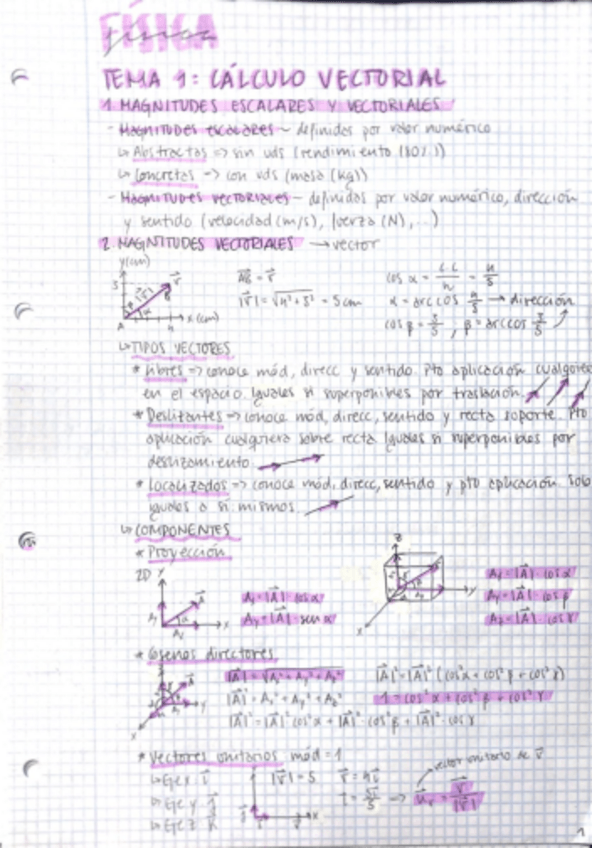 FÍSICA
física
TEMA 1: CÁLCULO VECTORIAL
1. MAGNITUDES ESCALARES Y VECTORIALES
- Magnitudes escalares ~ definidas por valor numérico
↳ Abstractas => sin uds (rendimiento (80%))
↳ Concretas -> con uds (masa (kg))
- Magnitudes vectoriales - definidas por valor numérico, dirección
y sentido (velocidad (m/s), fuerza (N), ...)
2. MAGNITUDES VECTORIALES → vector
y(cm)
x(cm)
|v⃗| = √(4² + 3²) = 5cm
cos α = c.c/h = 4/5
α = arc cos 4/5 → dirección
cos β = 3/5, β = arc cos 3/5
↳ TIPOS VECTORES
* Libres => conoce mód, direcc y sentido. Pto aplicación cualquiera
en el espacio. Iguales si superponibles por traslación.
* Deslizantes => conoce mód, direcc, sentido y recta soporte. Pto
aplicación cualquiera sobre recta. Iguales si superponibles por
deslizamiento.
* Localizados => conoce mód, direcc, sentido y pto aplicación. Solo
iguales a si mismos.
↳ COMPONENTES
* Proyección
2D
Ax = |A⃗| · cos α
Ay = |A⃗| · sen α
Ax = |A⃗| · cos α
Ay = |A⃗| · cos β
Az = |A⃗| · cos γ
* Cosenos directores
|A⃗| = √(Ax² + Ay² + Az²)
|A⃗|² = Ax² + Ay² + Az²
|A⃗|² = |A⃗|² cos² α + |A⃗|² cos² β + |A⃗|² cos γ
|A⃗|² = |A⃗|² (cos² α + cos² β + cos² γ)
1 = cos² α + cos² β + cos² γ
* Vectores unitarios mód = 1
↳ Eje x i⃗
↳ Eje y j⃗
↳ Eje z k⃗
|v⃗| = 5
vector unitario de v⃗
1